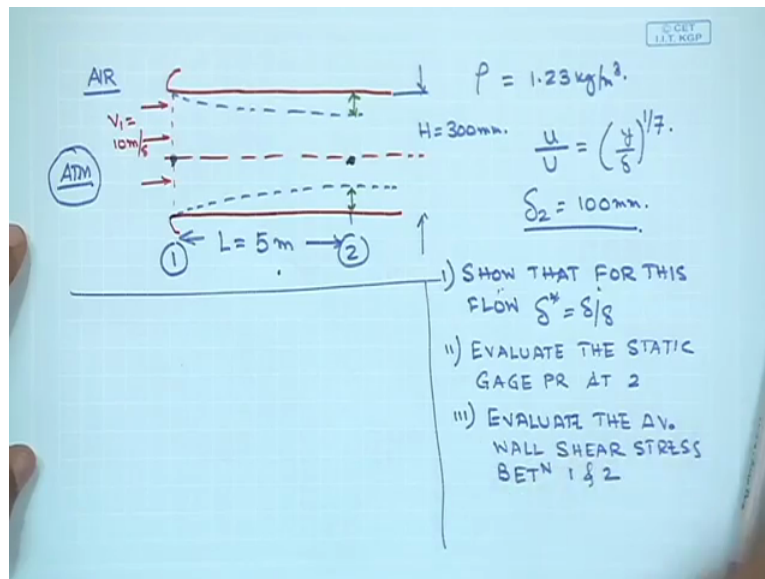 © CET
I.I.T. KGP
AIR
V₁ =
10m/s
ATM
① L = 5 m ②
H = 300mm.
ρ = 1.23 kg/m³.
u/U = (y/δ)^1/7.
δ₂ = 100mm.
i) SHOW THAT FOR THIS
FLOW δ* = δ/8
ii) EVALUATE THE STATIC
GAGE PR AT 2
iii) EVALUATE THE AV.
WALL SHEAR STRESS
BETᴺ 1 & 2